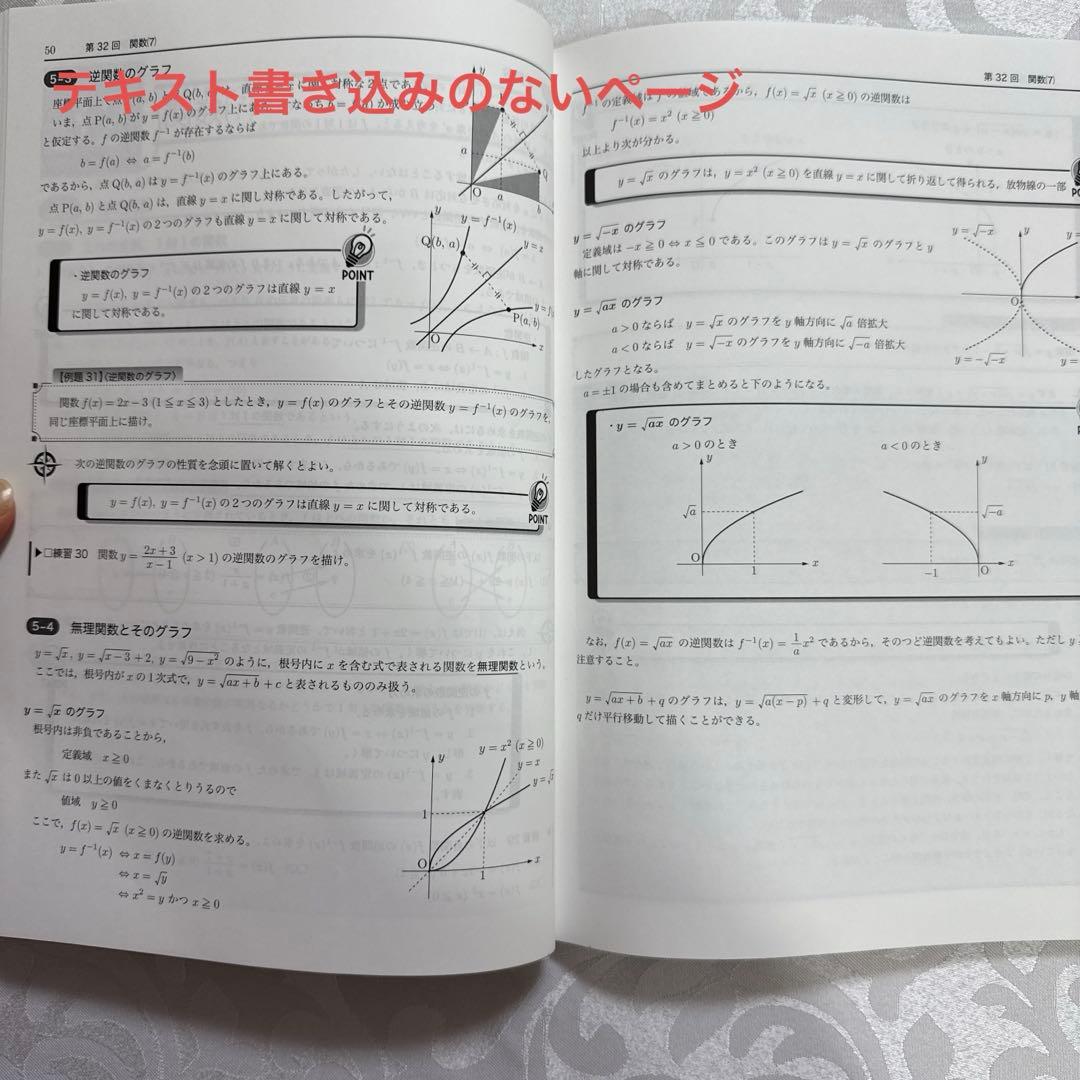 テキスト書き込みのないページ
50 第32回 関数(7)
5-3 逆関数のグラフ
いま，点P(a, b)が y=f(x) のグラフ上に
と仮定する。f の逆関数 f⁻¹ が存在するならば
b=f(a) ⇔ a=f⁻¹(b)
であるから，点Q(b, a)は y=f⁻¹(x) のグラフ上にある。
点P(a, b)と点Q(b, a)は，直線 y=x に関し対称である。したがって，
y=f(x), y=f⁻¹(x) の2つのグラフも直線 y=x に関して対称である。
y
a
Q
O
a
b
y
y=f⁻¹(x)
Q(b, a)
y=x
P(a, b)
x
POINT
・逆関数のグラフ
y=f(x), y=f⁻¹(x) の2つのグラフは直線 y=x
に関して対称である。
【例題31】(逆関数のグラフ)
関数 f(x)=2x−3 (1≦x≦3) としたとき，y=f(x) のグラフとその逆関数 y=f⁻¹(x) のグラフを，
同じ座標平面上に描け。
次の逆関数のグラフの性質を念頭に置いて解くとよい。
y=f(x), y=f⁻¹(x) の2つのグラフは直線 y=x に関して対称である。
POINT
▶□練習30 関数 y=(2x+3)/(x−1) (x>1) の逆関数のグラフを描け。
5-4 無理関数とそのグラフ
y=√x, y=√(x−3)+2, y=√(9−x²) のように，根号内に x を含む式で表される関数を無理関数という。
ここでは，根号内が x の1次式で，y=√(ax+b)+c と表されるもののみ扱う。
y=√x のグラフ
根号内は非負であることから，
定義域 x≧0
また √x は0以上の値をくまなくとりうるので
値域 y≧0
ここで，f(x)=√x (x≧0) の逆関数を求める。
y=f⁻¹(x) ⇔ x=f(y)
⇔ x=√y
⇔ x²=y かつ x≧0
y
y=x² (x≧0)
y=x
1
O
1
x
第32回 関数(7)
から，f(x)=√x (x≧0) の逆関数は
f⁻¹(x)=x² (x≧0)
以上より次が分かる。
y=√x のグラフは，y=x² (x≧0) を直線 y=x に関して折り返して得られる，放物線の一部
y=√−x のグラフ
定義域は −x≧0 ⇔ x≦0 である。このグラフは y=√x のグラフと y
軸に関して対称である。
y=√−x
y
O
y=−√−x
y=√ax のグラフ
a>0 ならば y=√x のグラフを y 軸方向に √a 倍拡大
a<0 ならば y=√−x のグラフを y 軸方向に √−a 倍拡大
したグラフとなる。
a=±1 の場合も含めてまとめると下のようになる。
・y=√ax のグラフ
a>0 のとき
y
√a
O
1
x
a<0 のとき
y
√−a
−1
O
x
なお，f(x)=√ax の逆関数は f⁻¹(x)=(1/a)x² であるから，そのつど逆関数を考えてもよい。ただし y
注意すること。
y=√(ax+b)+q のグラフは，y=√(a(x−p))+q と変形して，y=√ax のグラフを x 軸方向に p, y 軸
q だけ平行移動して描くことができる。